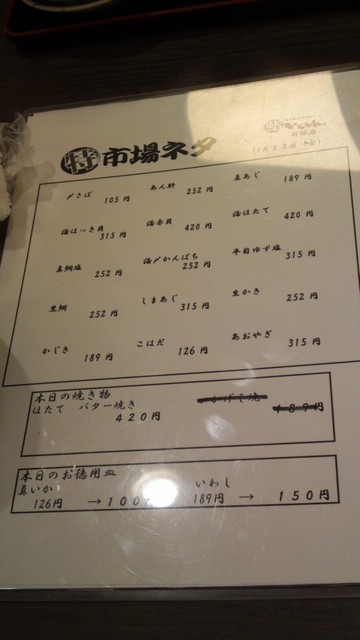 特 市場ネタ
〆さば 105円 あん肝 252円 真あじ 189円
活ほっき貝 315円 活赤貝 420円 活ほたて 420円
真鯛塩 252円 活〆かんぱち 252円 平目ゆず塩 315円
黒鯛 252円 しまあじ 315円 生かき 252円
かじき 189円 こはだ 126円 あおやぎ 315円
本日の焼き物
ほたて バター焼き
420円
189円
本日のお徳用皿
真いか いわし
126円 →100 189円 → 150円